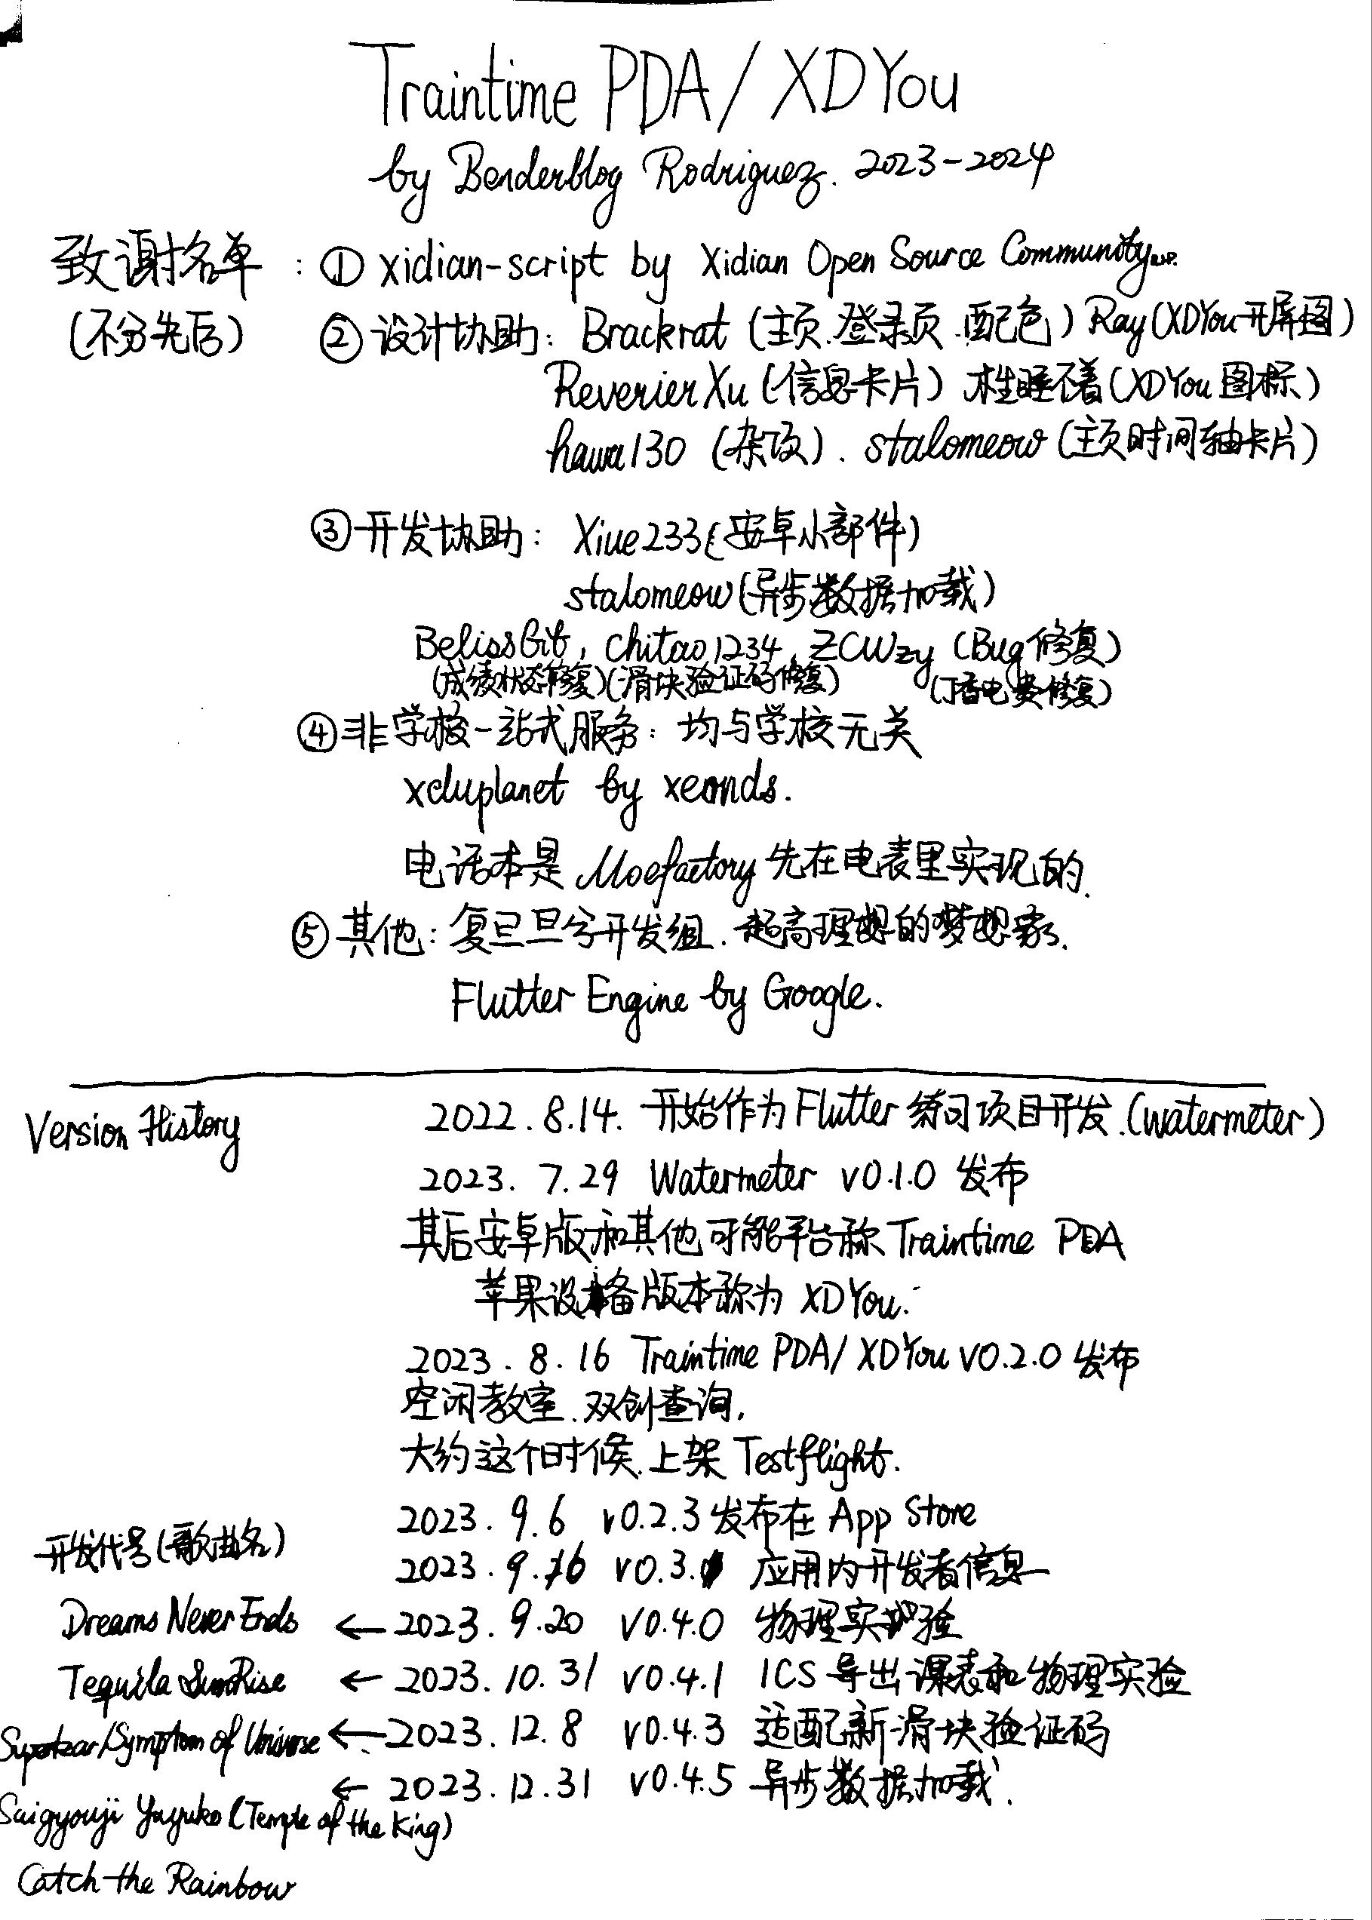 Traintime PDA / XDYou
by Benderblog Rodriguez. 2023-2024
致谢名单 : ① xidian-script by Xidian Open Source Community
(不分先后) ② 设计协助: Brackrat (主页.登录页.配色) Ray(XDYou开屏图)
ReverierXu (信息卡片) 木生睡不着(XDYou图标)
hawa130 (杂项). stalomeow (主页时间轴卡片)
③ 开发协助: Xiue233(安卓小部件)
stalomeow(异步数据加载)
BelissGit, chitao1234, ZCWzy (Bug修复)
(成绩状态修复)(滑块验证码修复) (丁香电费修复)
④ 非学校一站式服务: 均与学校无关
xduplanet by xeonds.
电话本是 Moefactory 先在电表里实现的.
⑤ 其他: 复旦旦兮开发组. 超高理想的梦想家.
Flutter Engine by Google.
Version History 2022.8.14. 开始作为Flutter 练习项目开发.(watermeter)
2023. 7.29 Watermeter v0.1.0 发布
其后安卓版和其他可能平台称Traintime PDA
苹果设备版本称为 XDYou.
2023.8.16 Traintime PDA/ XDYou v0.2.0 发布
空闲教室.双创查询,
大约这个时候.上架 Testflight.
2023. 9.6 v0.2.3 发布在 App Store
开发代号(歌曲名)
2023. 9.16 v0.3.0 应用内开发者信息
Dreams Never Ends ← 2023. 9.20 v0.4.0 物理实验
Tequila SunRise ← 2023. 10. 31 v0.4.1 ICS 导出课表和物理实验
Symptom of Universe ← 2023. 12. 8 v0.4.3 适配新滑块验证码
← 2023. 12. 31 v0.4.5 异步数据加载.
Saigyouji Yuyuko (Temple of the King)
Catch the Rainbow